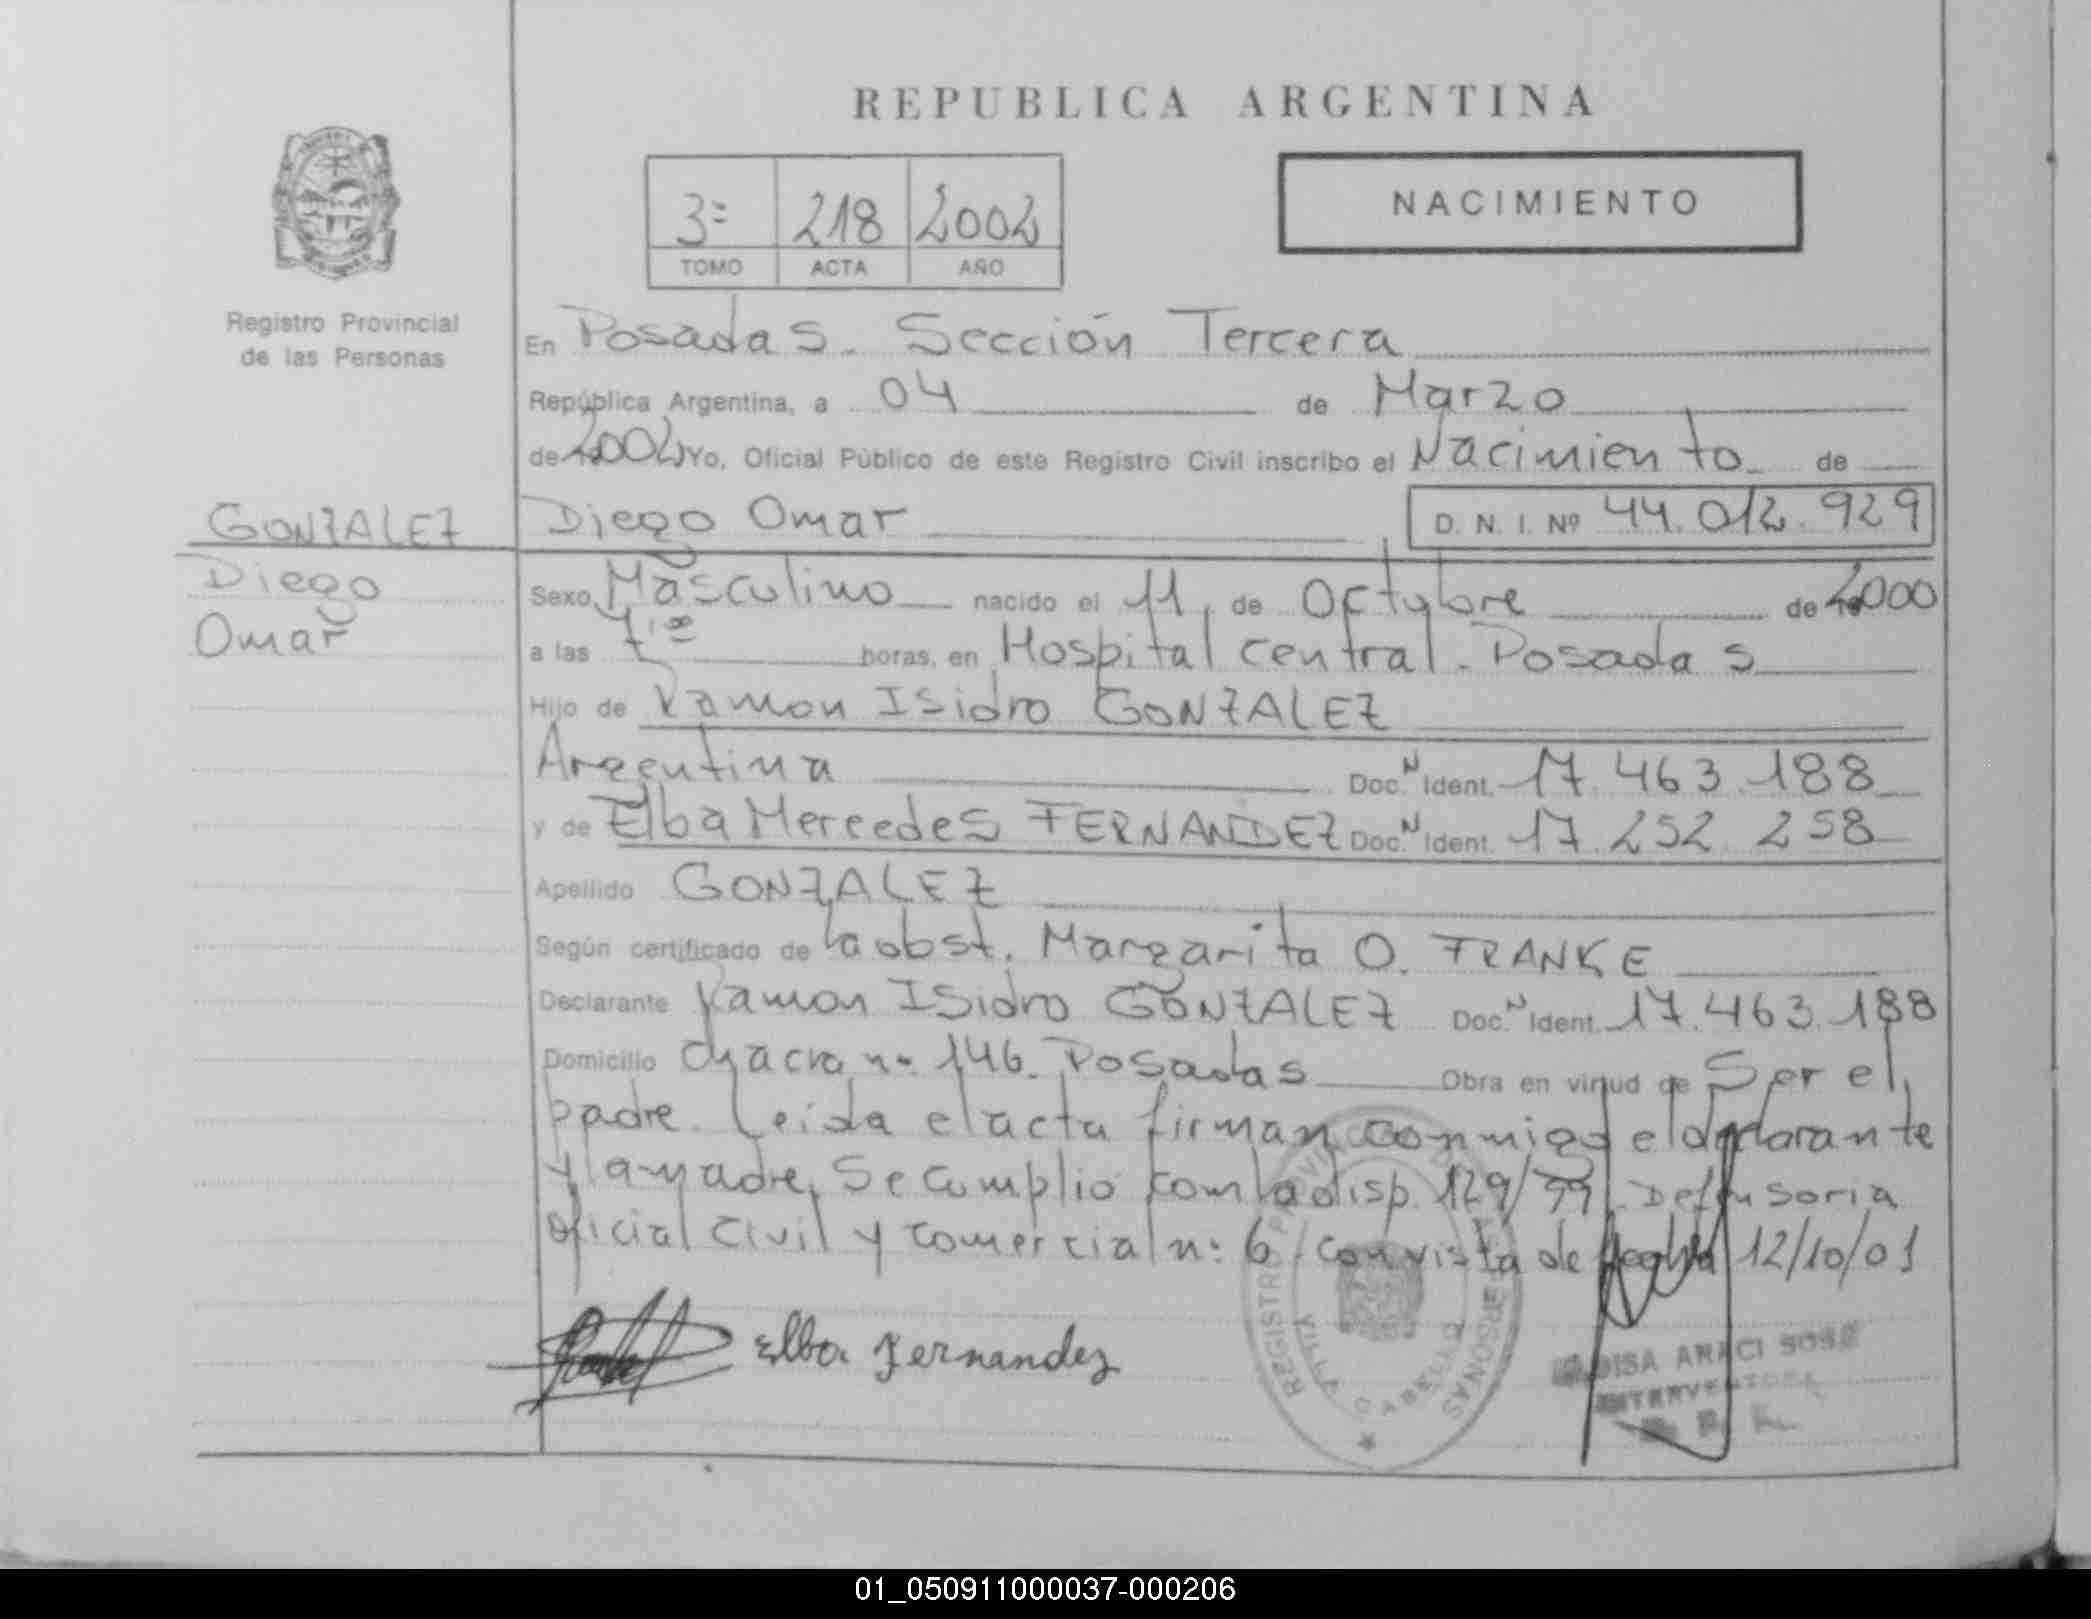 REPUBLICA ARGENTINA
3º 218 2002
TOMO ACTA AÑO
NACIMIENTO
Registro Provincial
de las Personas
En Posadas. Sección Tercera
República Argentina, a 04 de Marzo
de 2002 Yo, Oficial Público de este Registro Civil inscribo el Nacimiento de
GONZALEZ Diego Omar D. N. I. Nº 44.012.929
Diego
Omar
Sexo Masculino nacido el 11 de Octubre de 2000
a las 7,00 horas, en Hospital Central. Posadas
Hijo de Ramon Isidro GONZALEZ
Argentina Doc. N Ident. 17.463.188
y de Elba Mercedes FERNANDEZ Doc. N Ident. 17.252.258
Apellido GONZALEZ
Según certificado de la obst. Margarita O. FRANKE
Declarante Ramon Isidro GONZALEZ Doc. N Ident. 17.463.188
Domicilio Chacra nº 146. Posadas Obra en virtud de Ser el
padre. Leida el acta firman conmigo el declarante
y la madre. Se cumplio con la disp. 129/99. Defensoria
Oficial Civil y Comercial nº 6. Con vista de fecha 12/10/01
Elba Fernandez
REGISTRO PROVINCIAL DE LAS PERSONAS
VILLA CABELLO
ARACI SOSA
INTERVENTORA
01_050911000037-000206